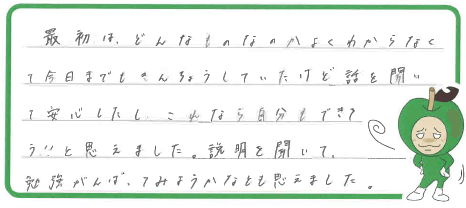 最初は、どんなものなのかよくわからなく
て今日までもきんちょうしていたけど話を聞い
て安心したし、これなら自分もできそ
う!!と思えました。説明を聞いて、
勉強がんばってみようかなとも思えました。